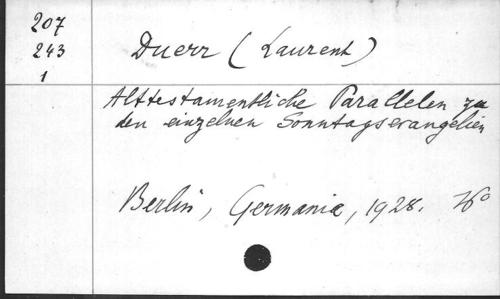 207
243
1
Duerr (Laurent)
Alttestamentliche Parallelen zu
den einzelnen Sonntagsevangelien
Berlin, Germania, 1928.